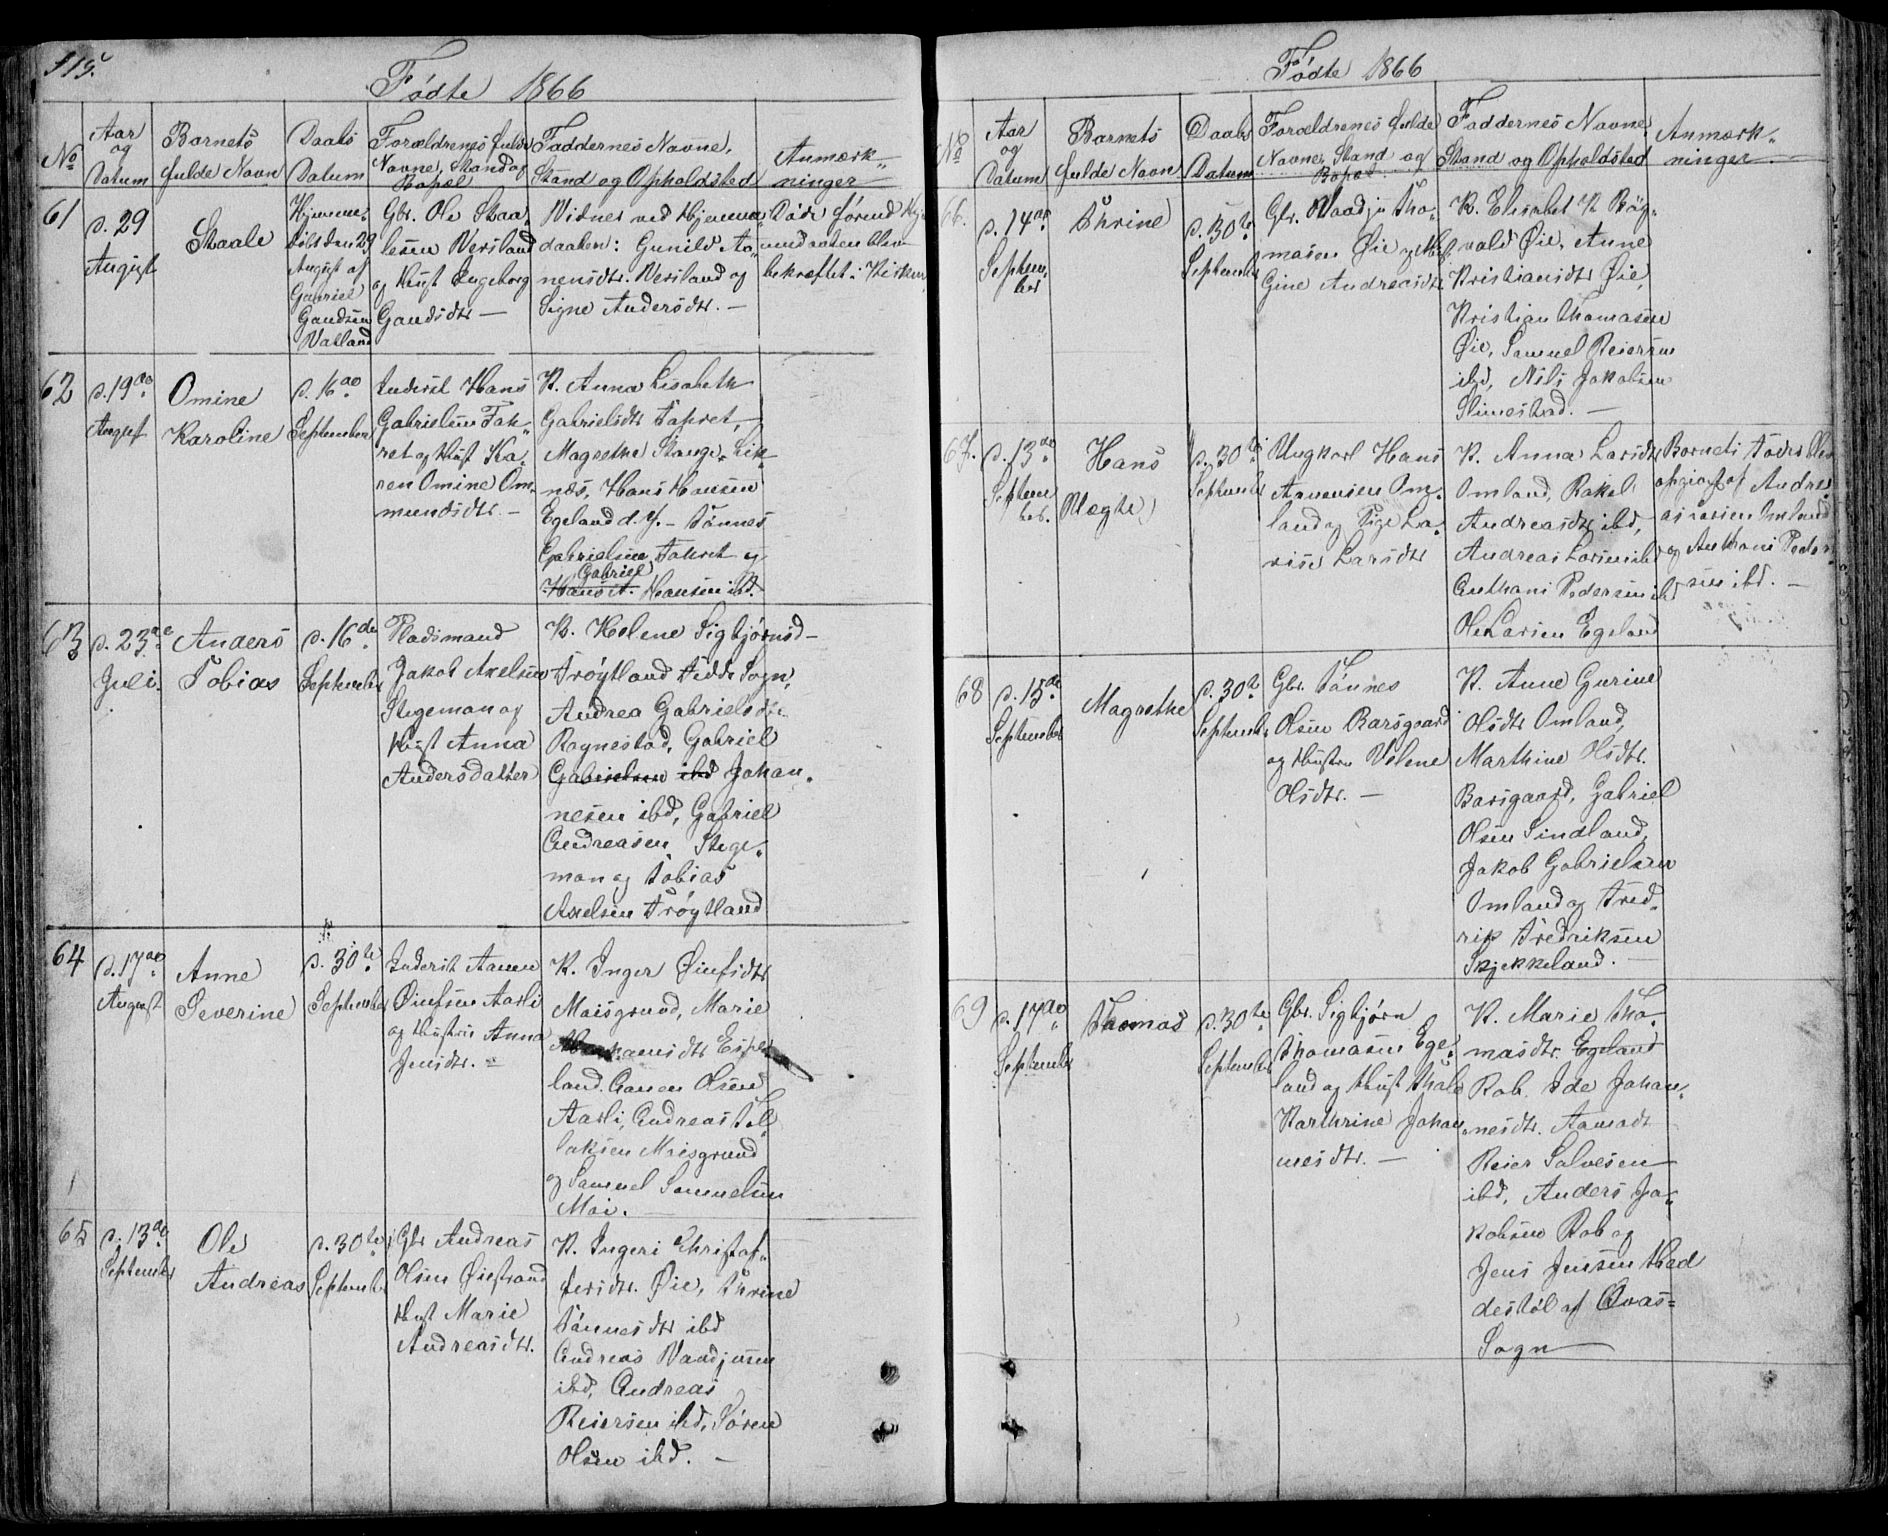 115.
Fødte 1866
No
Aar og Datum
Barnets fulde Navn
Daabs Datum
Forældrenes fulde Navne, Stand og Bopæl
Faddernes Navne, Stand og Opholdsted
Anmærkninger
61
d. 29 August
Staale
Hjemme-
døbt den 29
August af
Gabriel
Gaudsen
Valland
Gbr. Ole Staa
lesen Versland
og Hust Ingeborg
Gaudsdtr —
Vidner ved Hjemme
daaben: Gunild Aa
nensdtr. Versland og
Signe Andersdtr. —
Døde førend Hje
mmedaaben blev
bekræftet i Kirken
62
d. 19de
August
Omine
Karoline
d. 16de
September
Inderst Hans
Gabrielsen Fak-
ret og Hust Ka-
ren Omine Om-
mundsdtr. —
K. Anna Lisabeth
Gabrielsdtr Fakret,
Magrethe Stange
Hans Hansen
Egeland d. y. — Tønnes
Gabrielsen Fakret og
Gabriel
Hans A. Hansen ibd.
63
d. 23de
Juli.
Anders
Tobias
d. 16de
September
Pladsmand
Jakob Axelsen
Stegemon og
Hust Anna
Andersdatter
K. Helene Sigbjørnsd—
Frøytland Fedde Sogn,
Andrea Gabrielsdtr
Ragnestad, Gabriel
Gabrielsen ibd Johan-
nesen ibd, Gabriel
Andreasen Stege-
mon og Tobias
Axelsen Frøytland
64
d. 17de
August
Anne
Severine
d. 30te
September
Inderst Aanen
Øiufsen Aasli
og Hustru Anna
Jensdtr. —
K. Inger Øiufsdtr
Moisgrund, Marie
Abrahamsdtr Espe
land. Aanen Olsen
Aasli, Andreas Tol-
laksen Moisgrund
og Samuel Samuelsen
Moi. —
65
d. 13de
September
Ole
Andreas
d. 30te
September
Gbr Andreas
Olsen Øiestrand
Hust Marie
Andreasdtr.
K. Ingeri Christof-
fersdtr. Øie, Thrine
Tønnesdtr ibd
Andreas Vaadjusen
ibd, Andreas
Reiersen ibd, Søren
Olsen ibd. —
Fødte 1866
No
Aar og Datum
Barnets fulde Navn
Daabs Datum
Forældrenes fulde Navne, Stand og Bopæl
Faddernes Navne Stand og Opholdsted
Anmærkninger
66.
d. 14de
Septem-
ber
Thrine
d. 30te
September
Gbr. Vaadju Tho-
masen Øie og Hust
Gine Andreasdtr
K. Elisabet K Røg-
vald Øie, Anne
Kristiansdtr Øie,
Kristian Thomasen
Øie, Samuel Reiersen
ibd, Nils Jakobsen
Slimestad. —
67.
d. 13de
Septem
ber.
Hans
d. 30te
September
Ungkarl Hans
Aanensen Om-
land og Pige La-
vise Larsdtr
K. Anna Larsdtr
Omland, Rakel
Andreasdtr ibd,
Andreas Larsen ibd
Anthoni Pedersen ibd
Ole Larsen Egeland
Barnets Fader blev
opgivet af Andre
as Larsen Omland
og Anthoni Peder
sen ibd. —
68
d. 15de
September
Magrethe
d. 30te
September
Gbr. Tønnes
Olsen Barsgaard
og Hustru Velene
Olsdtr. —
K. Anne Gurine
Olsdtr Omland,
Marthine Olsdtr.
Barsgaard, Gabriel
Olsen Sindland,
Jakob Gabrielsen
Omland og Fred-
rik Fredriksen
Skjekkeland. —
69
d. 17de
September
Thomas
d. 30te
September
Gbr. Sigbjørn
Thomasen Ege-
land og Hust Thale
Karthrine Johan-
nesdtr. —
K. Marie Tho-
masdtr. Egeland
Rob. Ide Johan-
nesdtr. Aamodt
Reier Salvesen
ibd, Anders Ja-
kobsen Rob og
Jens Jensen Had
destøl af Qvas-
Sogn —